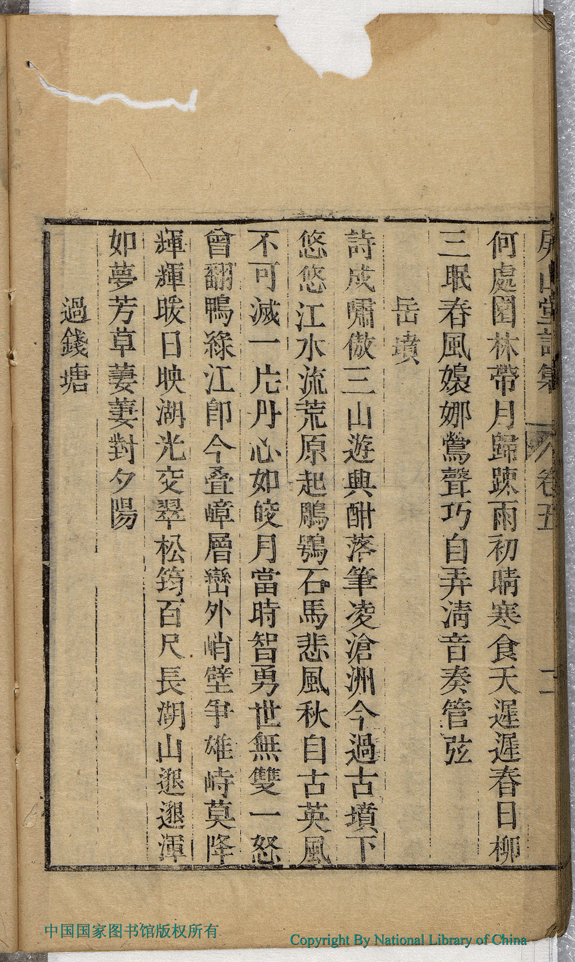 屏山堂詩集 卷五 二
何處園林帶月歸踈雨初晴寒食天遲遲春日柳
三眠春風嬝娜鶯聲巧自弄清音奏管弦
岳墳
詩成嘯傲三山遊興酣落筆凌滄洲今過古墳下
悠悠江水流荒原起鵰鶚石馬悲風秋自古英風
不可滅一片丹心如皎月當時智勇世無雙一怒
曾翻鴨綠江即今叠嶂層巒外峭壁爭雄峙莫降
輝輝暖日映湖光交翠松筠百尺長湖山邈邈渾
如夢芳草萋萋對夕陽
過錢塘
中国国家图书馆版权所有
Copyright By National Library of China